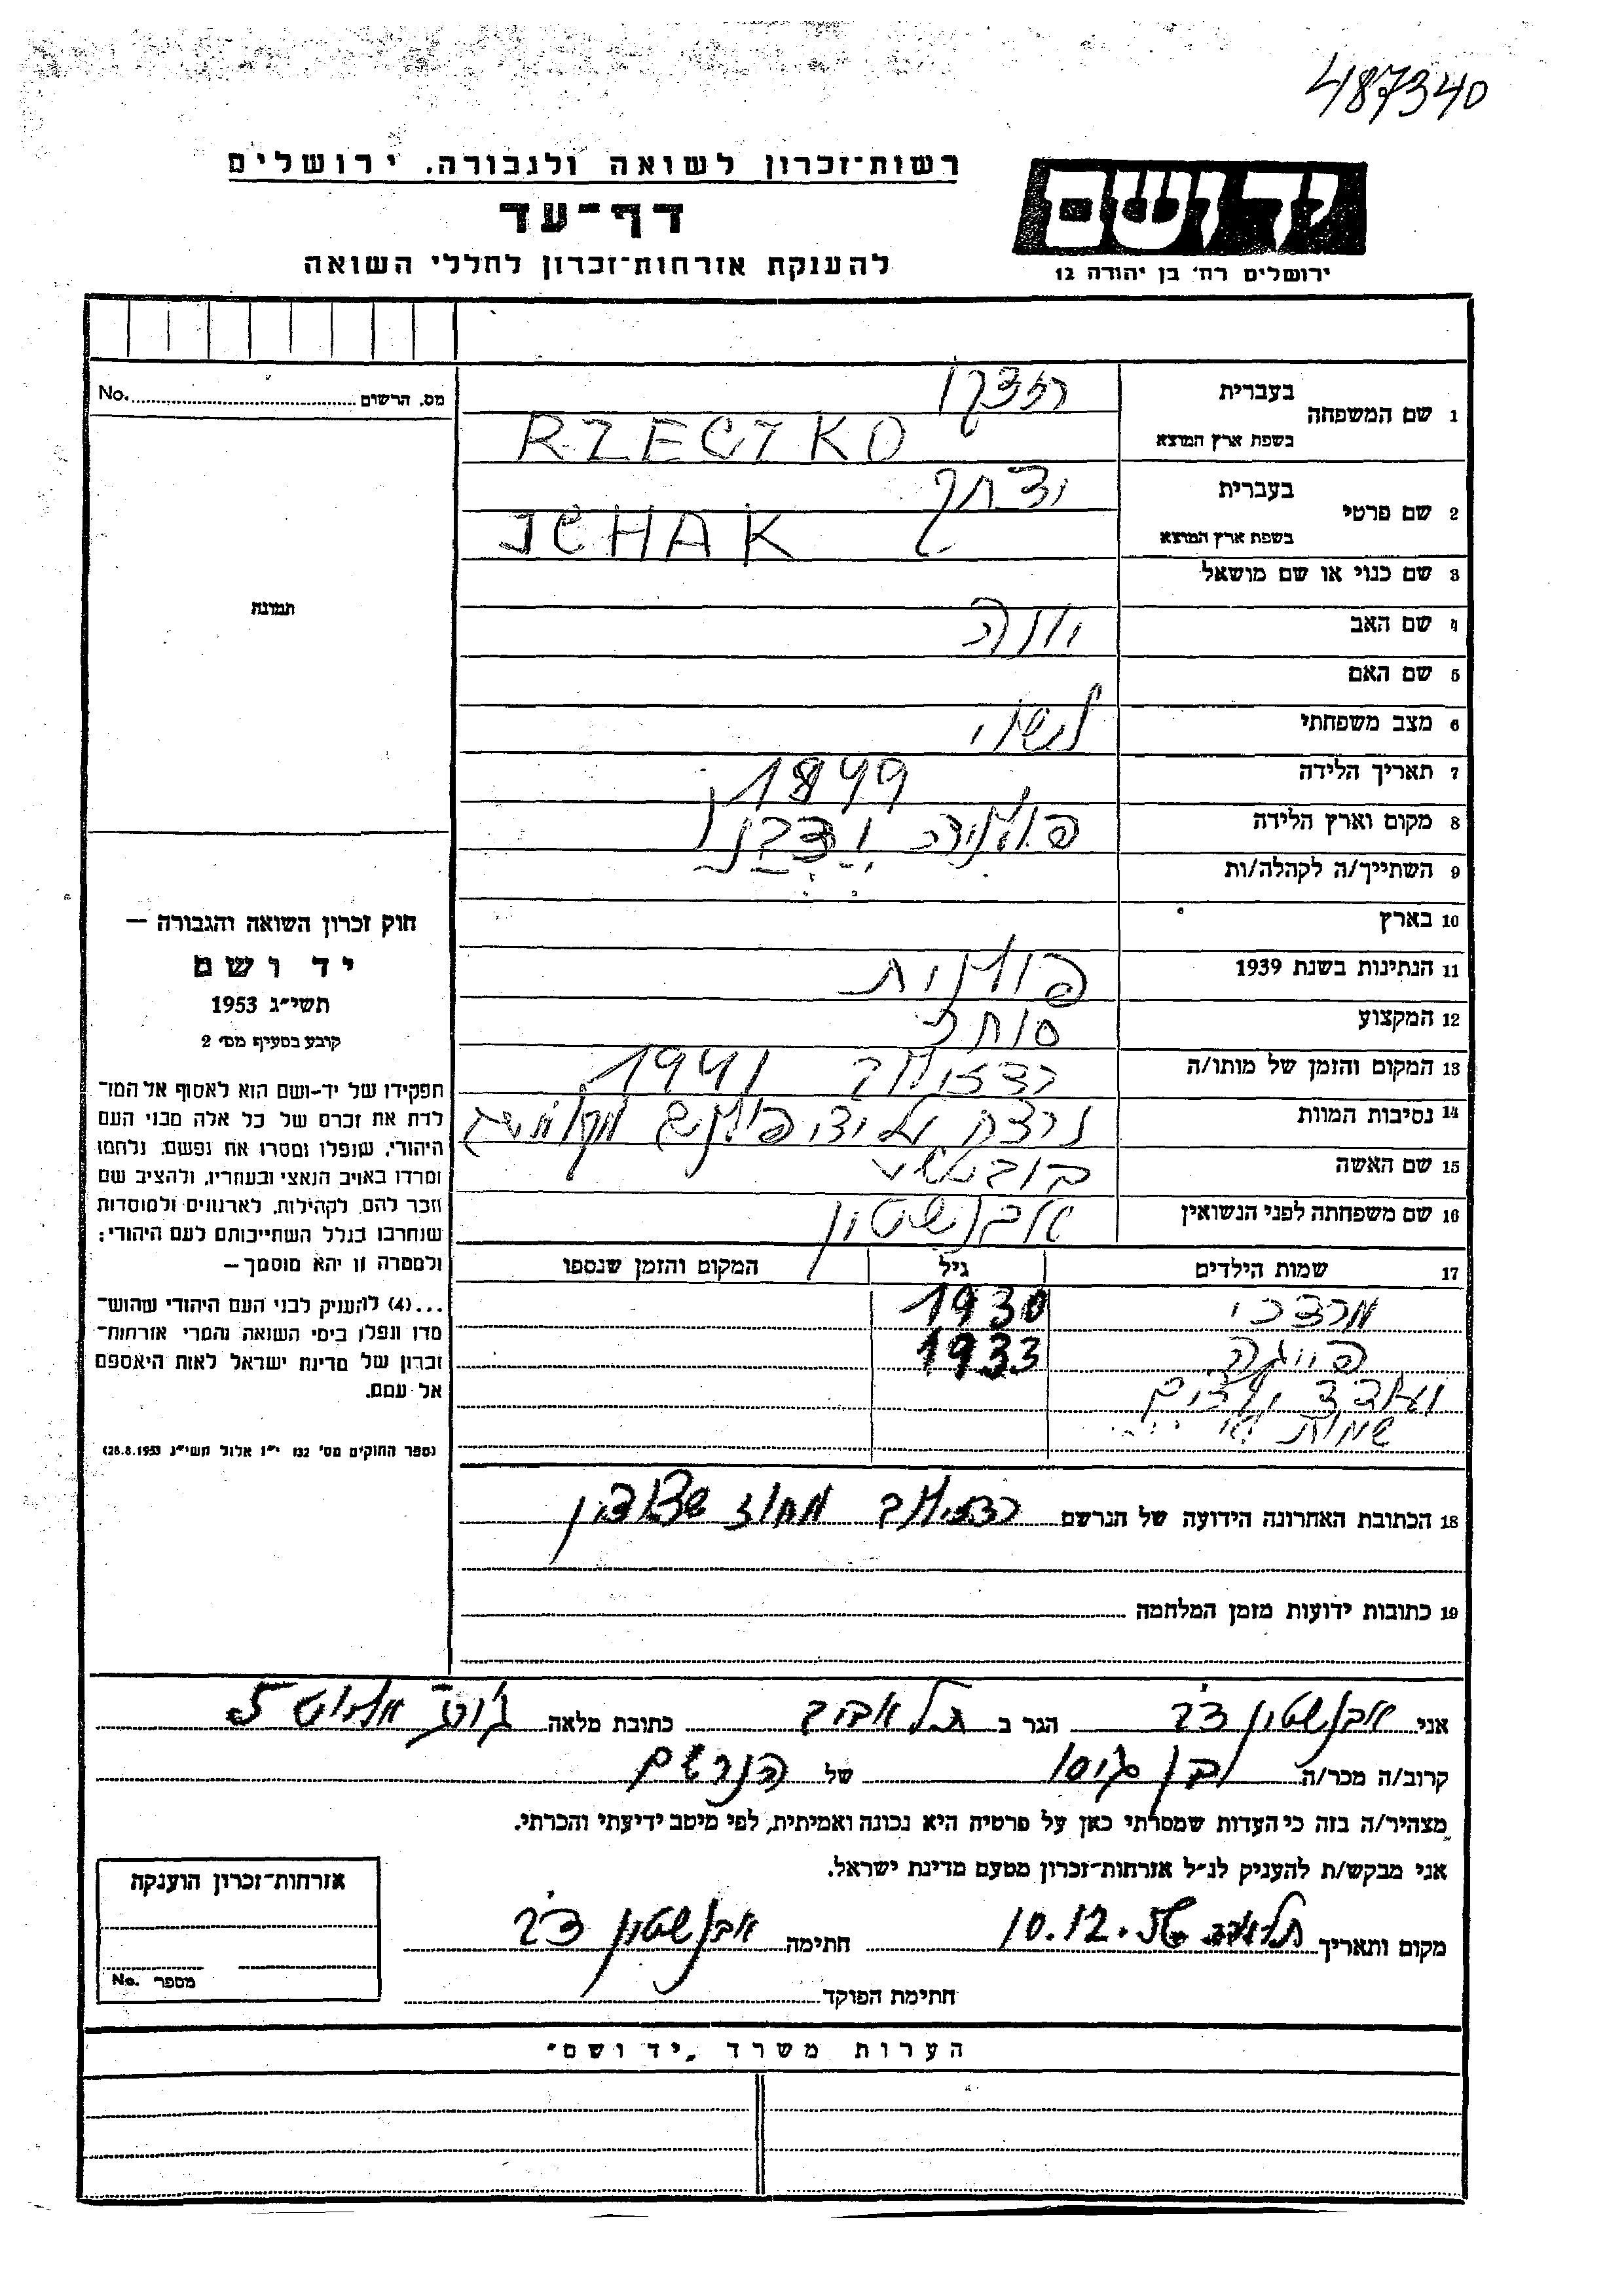 487340
רשות־זכרון לשואה ולגבורה. ירושלים
דף־עד
להענקת אזרחות־זכרון לחללי השואה
יד ושם
ירושלים רח׳ בן יהודה 12
מס. הרשום No.
1 שם המשפחה
בעברית
בשפת ארץ המוצא RZECZKO
2 שם פרטי
בעברית יצחק
בשפת ארץ המוצא ICHAK
3 שם כנוי או שם מושאל
4 שם האב יונה
5 שם האם
6 מצב משפחתי נשוי
7 תאריך הלידה 1899
8 מקום וארץ הלידה פולניה
9 השתייך/ה לקהלה/ות
10 בארץ
11 הנתינות בשנת 1939 פולנית
12 המקצוע סוחר
13 המקום והזמן של מותו/ה רדזילוב 1941
14 נסיבות המוות נרצח על ידי פולנים מקומיים
15 שם האשה
16 שם משפחתה לפני הנשואין אבנשטיין
17 שמות הילדים גיל המקום והזמן שנספו
מרדכי 1930
פייגה 1933
ועוד ילדים
18 הכתובת האחרונה הידועה של הנרשם רדזילוב מחוז
19 כתובות ידועות מזמן המלחמה
תמונה
חוק זכרון השואה והגבורה —
יד ושם
תשי״ג 1953
קובע בסעיף מס׳ 2
תפקידו של יד-ושם הוא לאסוף אל המו־
לדת את זכרם של כל אלה מבני העם
היהודי, שנפלו ומסרו את נפשם, נלחמו
ומרדו באויב הנאצי ובעוזריו, ולהציב שם
וזכר להם, לקהילות, לארגונים ולמוסדות
שנחרבו בגלל השתייכותם לעם היהודי;
ולמטרה זו יהא מוסמך—
...(4) להעניק לבני העם היהודי שהוש־
מדו ונפלו בימי השואה והמרי אזרחות־
זכרון של מדינת ישראל לאות היאספם
אל עמם.
(ספר החוקים מס׳ 132 י״ז אלול תשי״ג 28.8.1953)
אני אבנשטיין דב הגר ב תל אביב כתובת מלאה 5
קרוב/ה מכר/ה בן גיסו של הנרשם
מצהיר/ה בזה כי העדות שמסרתי כאן על פרטיה היא נכונה ואמיתית, לפי מיטב ידיעתי והכרתי.
אני מבקש/ת להעניק לנ״ל אזרחות־זכרון מטעם מדינת ישראל.
מקום ותאריך תל אביב 10.12.56 חתימה אבנשטיין דב
חתימת הפוקד
אזרחות־זכרון הוענקה
מספר No.
הערות משרד „יד ושם״